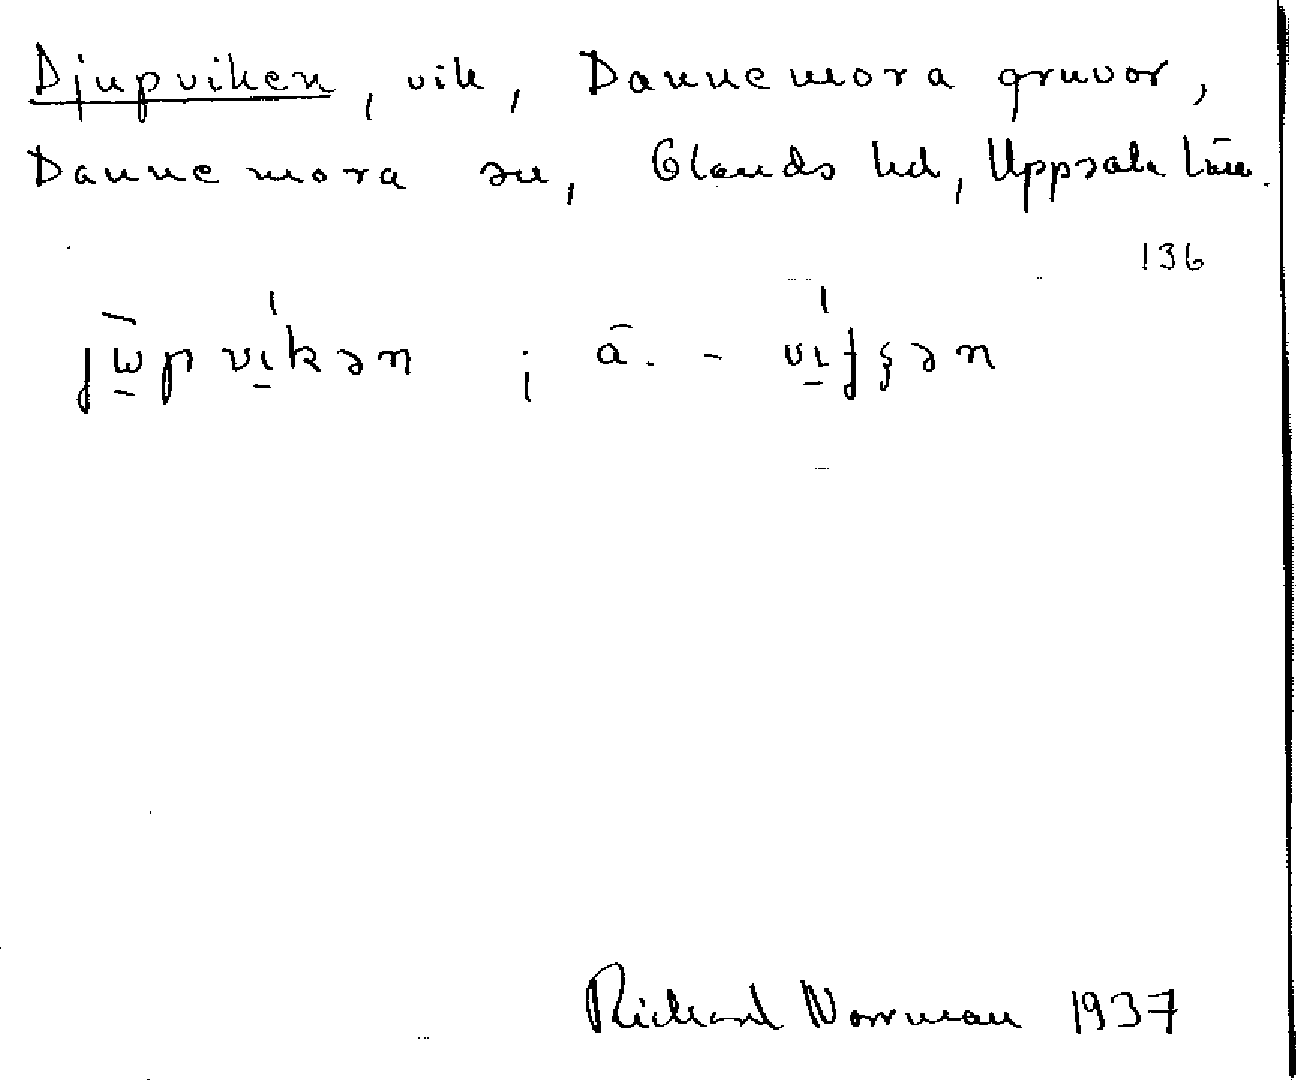 Djupviken, vik, Dannemora gruvor,
Dannemora sn, Olands hd, Uppsala län.
136
jω̄pvikən ; ä. - viʄʂən
Richard Norrman 1937